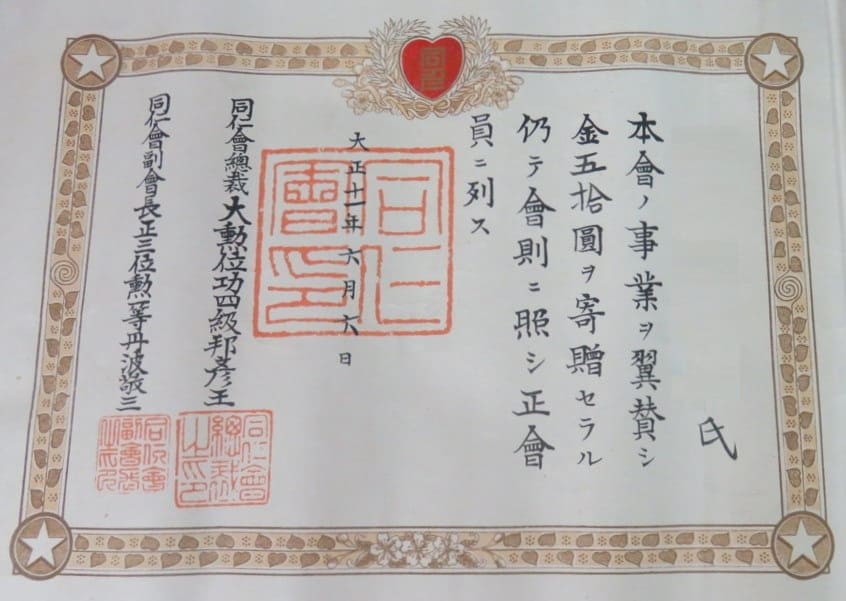 氏
本會ノ事業ヲ翼賛シ
金五拾圓ヲ寄贈セラル
仍テ會則ニ照シ正會
員ニ列ス
大正十一年六月六日
同仁會總裁大勲位功四級邦彦王
同仁會副會長正三位勲一等丹波敬三
同仁會印
同仁會總裁之印
同仁會副會長之印
同仁